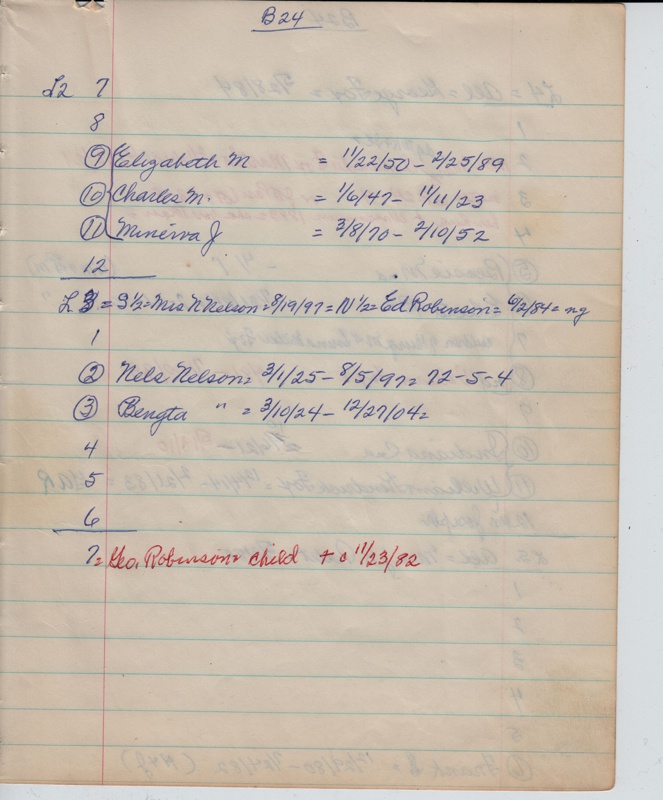 B24
L2 7
8
⑨ Elizabeth M = 11/22/50 - 2/25/89
⑩ Charles M. = 1/6/47 - 11/11/23
⑪ Minerva J = 3/8/70 - 2/10/52
12
L 3 = S 1/2 = Mrs N Nelson = 8/19/97 = N 1/2 = Ed Robinson = 6/2/84 = ng
1
② Nels Nelson = 3/1/25 - 8/5/97 = 72-5-4
③ Bengta " = 3/10/24 - 12/27/04 =
4
5
6
7 = Geo. Robinson = child + c 11/23/82